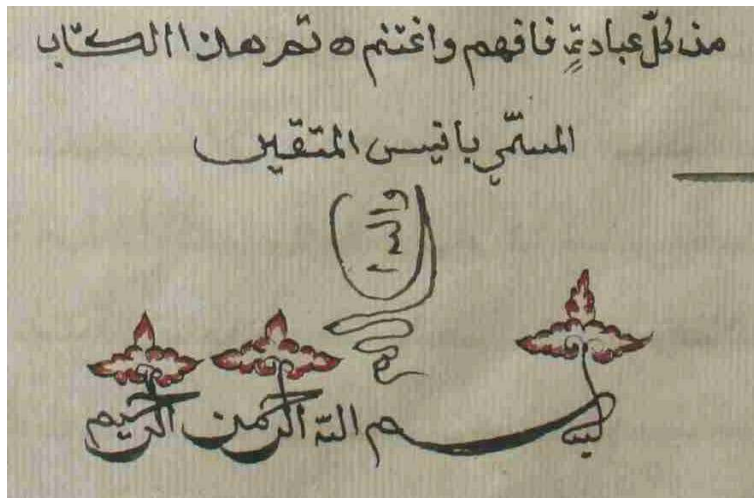 من كلّ عبادتٍ فافهم واغتنم ه تم هذا الكتاب
المسمّي بانيس المتقين
بسم الله الرحمن الرحيم